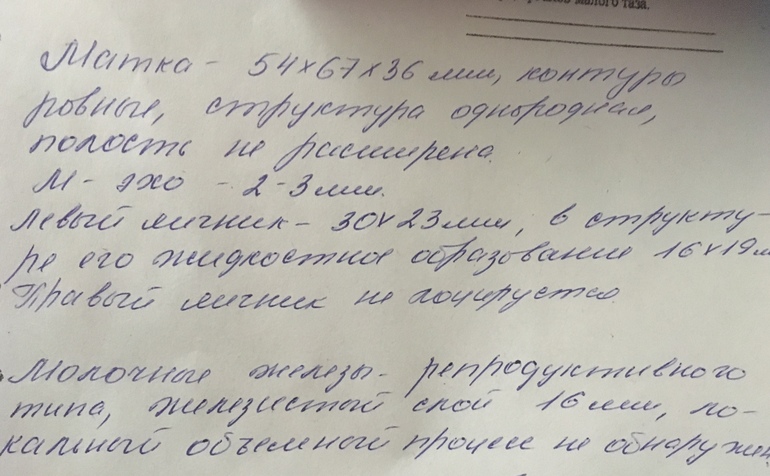 малого таза.
Матка - 54×67×36 мм, контуры
ровные, структура однородная,
полость не расширена.
М - эхо - 2-3 мм.
Левый яичник - 30×23 мм, в структу-
ре его жидкостное образование 16×19 м
Правый яичник не лоцируется.
Молочные железы - репродуктивного
типа, железистый слой 16 мм, ло-
кальный объемный процесс не обнаружен